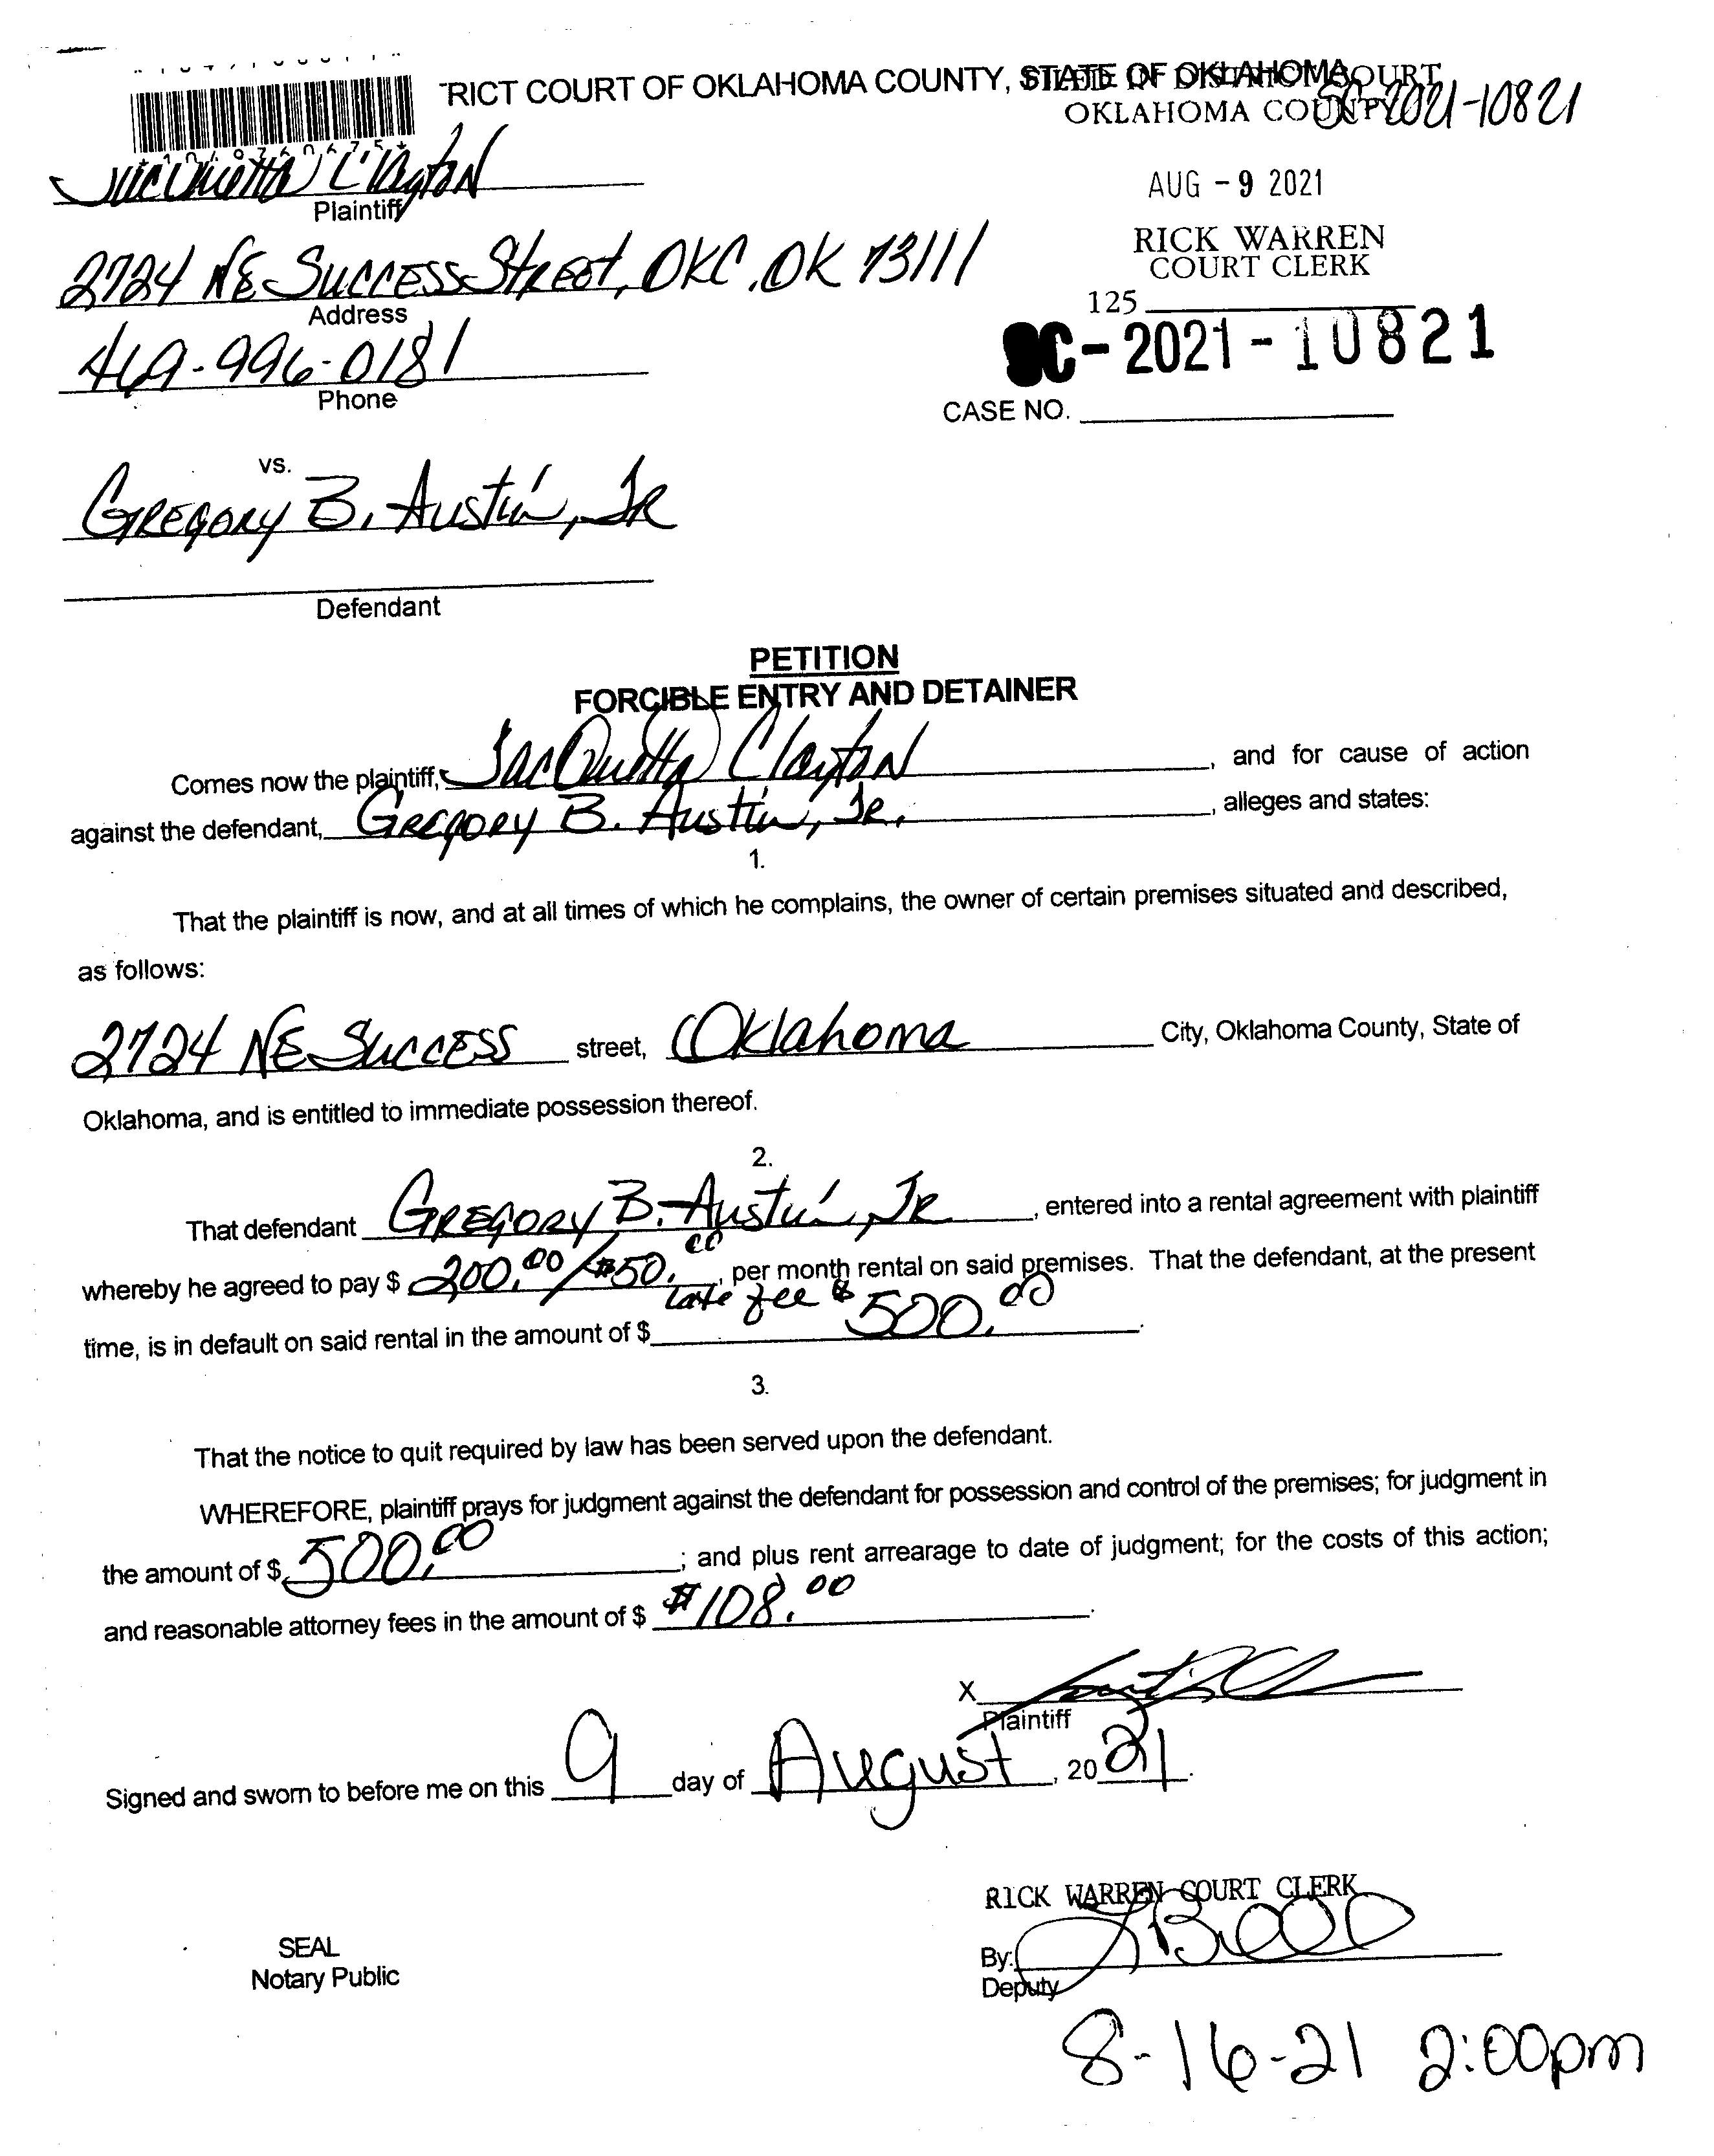 RICT COURT OF OKLAHOMA COUNTY, STATE OF OKLAHOMA
FILED IN DISTRICT COURT
OKLAHOMA COUNTY
SC-2021-10821
JacQuetta Clayton
Plaintiff
AUG - 9 2021
2724 NE Success Street, OKC, OK 73111
Address
RICK WARREN
COURT CLERK
125
469-996-0181
Phone
SC-2021-10821
CASE NO.
vs.
Gregory B. Austin, Jr
Defendant
PETITION
FORCIBLE ENTRY AND DETAINER
Comes now the plaintiff, JacQuetta Clayton, and for cause of action
against the defendant, Gregory B. Austin, Jr., alleges and states:
1.
That the plaintiff is now, and at all times of which he complains, the owner of certain premises situated and described,
as follows:
2724 NE Success street, Oklahoma City, Oklahoma County, State of
Oklahoma, and is entitled to immediate possession thereof.
2.
That defendant Gregory B. Austin, Jr, entered into a rental agreement with plaintiff
whereby he agreed to pay $ 200.00/$50.00, per month rental on said premises. That the defendant, at the present
late fee $
time, is in default on said rental in the amount of $ 500.00.
3.
That the notice to quit required by law has been served upon the defendant.
WHEREFORE, plaintiff prays for judgment against the defendant for possession and control of the premises; for judgment in
the amount of $ 500.00; and plus rent arrearage to date of judgment; for the costs of this action;
and reasonable attorney fees in the amount of $ $108.00.
X
Plaintiff
Signed and sworn to before me on this 9 day of August, 2021.
RICK WARREN COURT CLERK
SEAL
Notary Public
By:
Deputy
8-16-21 2:00pm